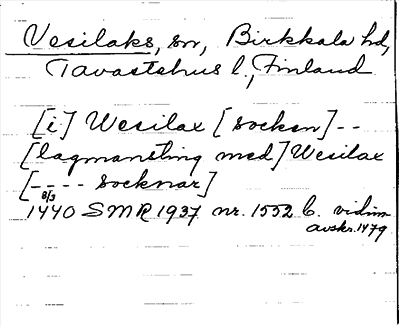 Vesilaks, sn, Birkkala hd,
Tavastehus l., Finland
[i] Wesilax [socken] - -
[lagmansting med] Wesilax
[- - - - socknar]
8/3
1440 SMR 1937 nr. 1552 b. vidim.
avskr. 1479